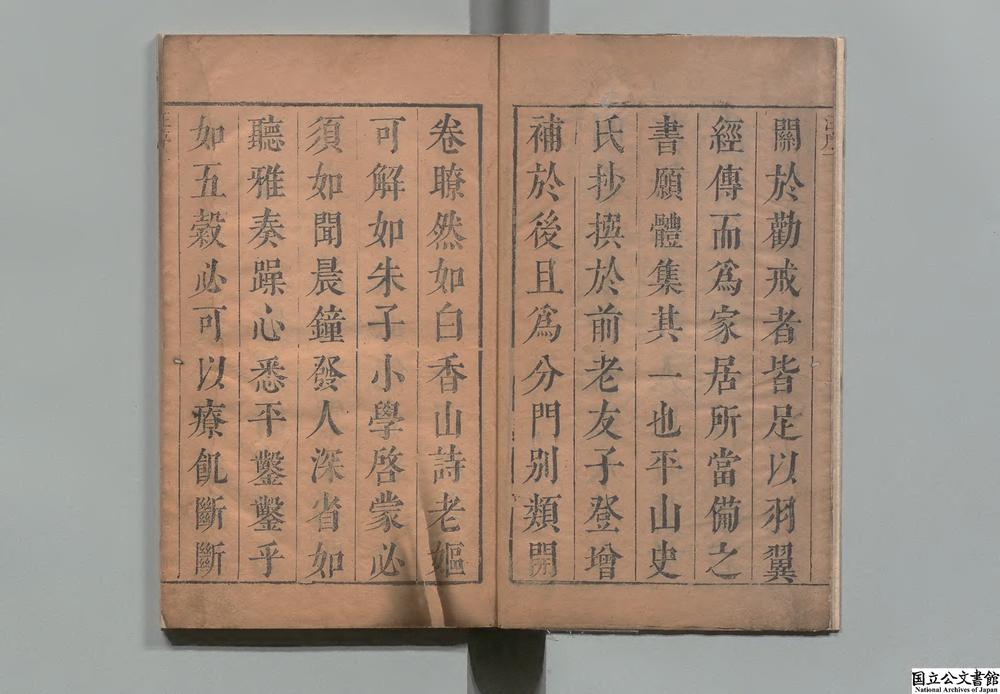 關於勸戒者皆足以羽翼
經傳而爲家居所當備之
書願體集其一也平山史
氏抄撰於前老友子登增
補於後且爲分門別類開
卷瞭然如白香山詩老嫗
可解如朱子小學啓蒙必
須如聞晨鐘發人深省如
聽雅奏躁心悉平鑿鑿乎
如五穀必可以療飢斷斷
国立公文書館
National Archives of Japan